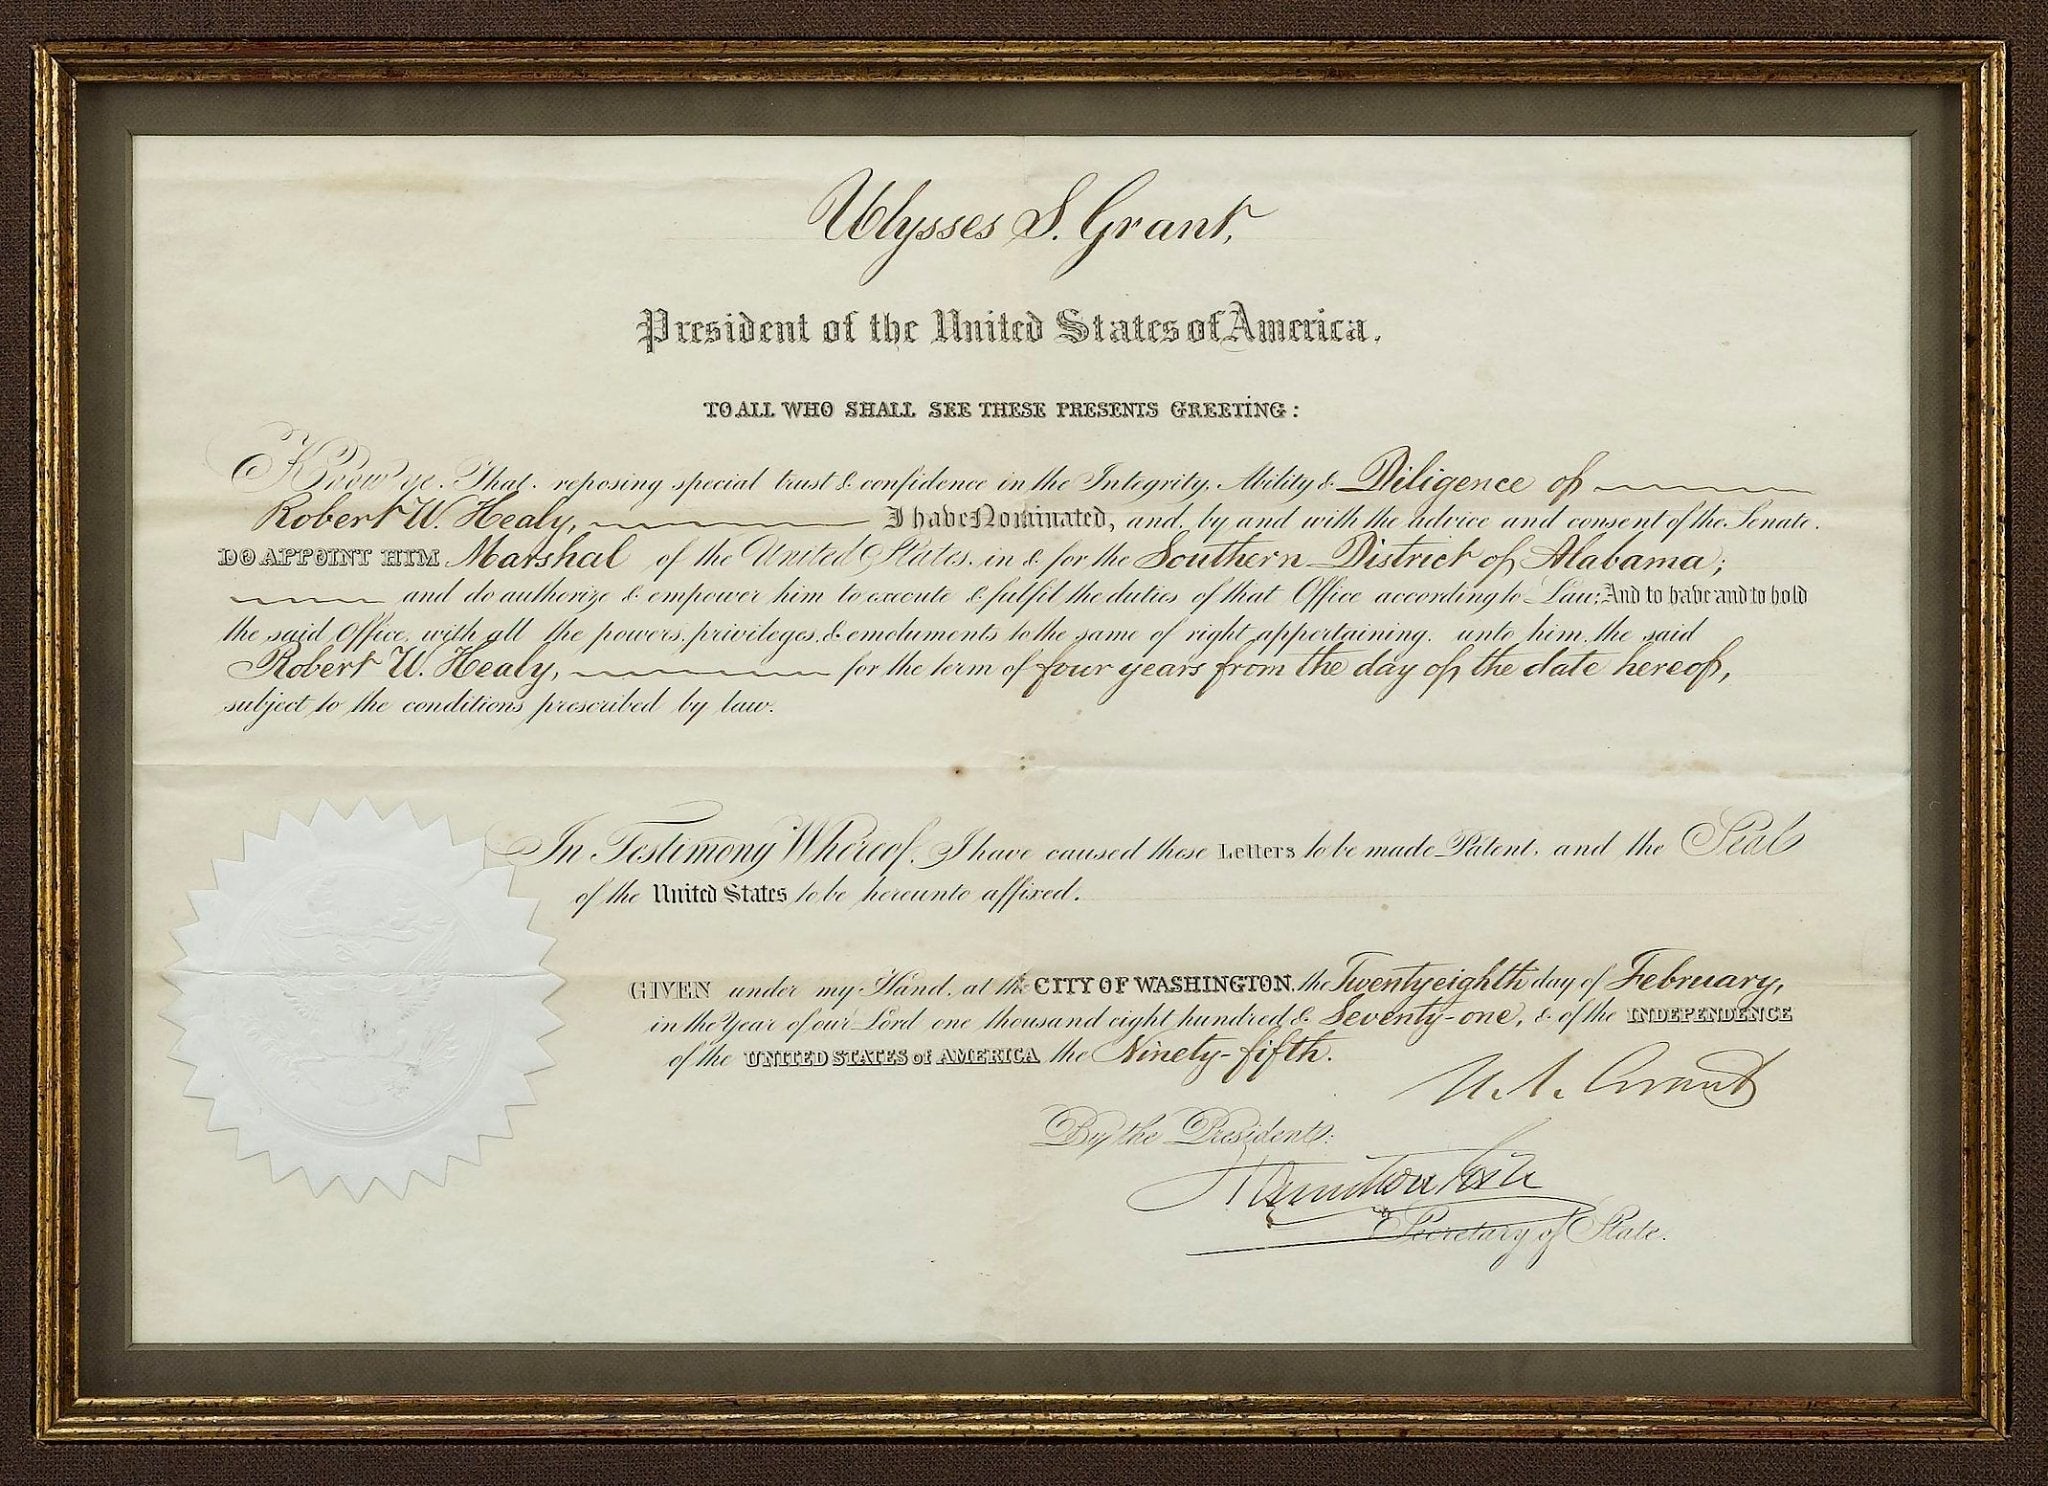 Ulysses S. Grant,
President of the United States of America.
TO ALL WHO SHALL SEE THESE PRESENTS GREETING:
Know ye, That, reposing special trust & confidence in the Integrity, Ability & Diligence of
Robert W. Healy, I have Nominated, and, by and with the advice and consent of the Senate,
DO APPOINT HIM Marshal of the United States, in & for the Southern District of Alabama;
and do authorize & empower him to execute & fulfil the duties of that Office according to Law; And to have and to hold
the said Office, with all the powers, privileges, & emoluments to the same of right appertaining, unto him, the said
Robert W. Healy, for the term of four years from the day of the date hereof,
subject to the conditions prescribed by law.
In Testimony Whereof, I have caused these Letters to be made Patent, and the Seal
of the United States to be hereunto affixed.
GIVEN under my Hand, at the CITY OF WASHINGTON, the Twenty eighth day of February,
in the Year of our Lord one thousand eight hundred & Seventy-one, & of the INDEPENDENCE
of the UNITED STATES of AMERICA the Ninety-fifth.
U. S. Grant
By the President:
Hamilton Fish
Secretary of State.